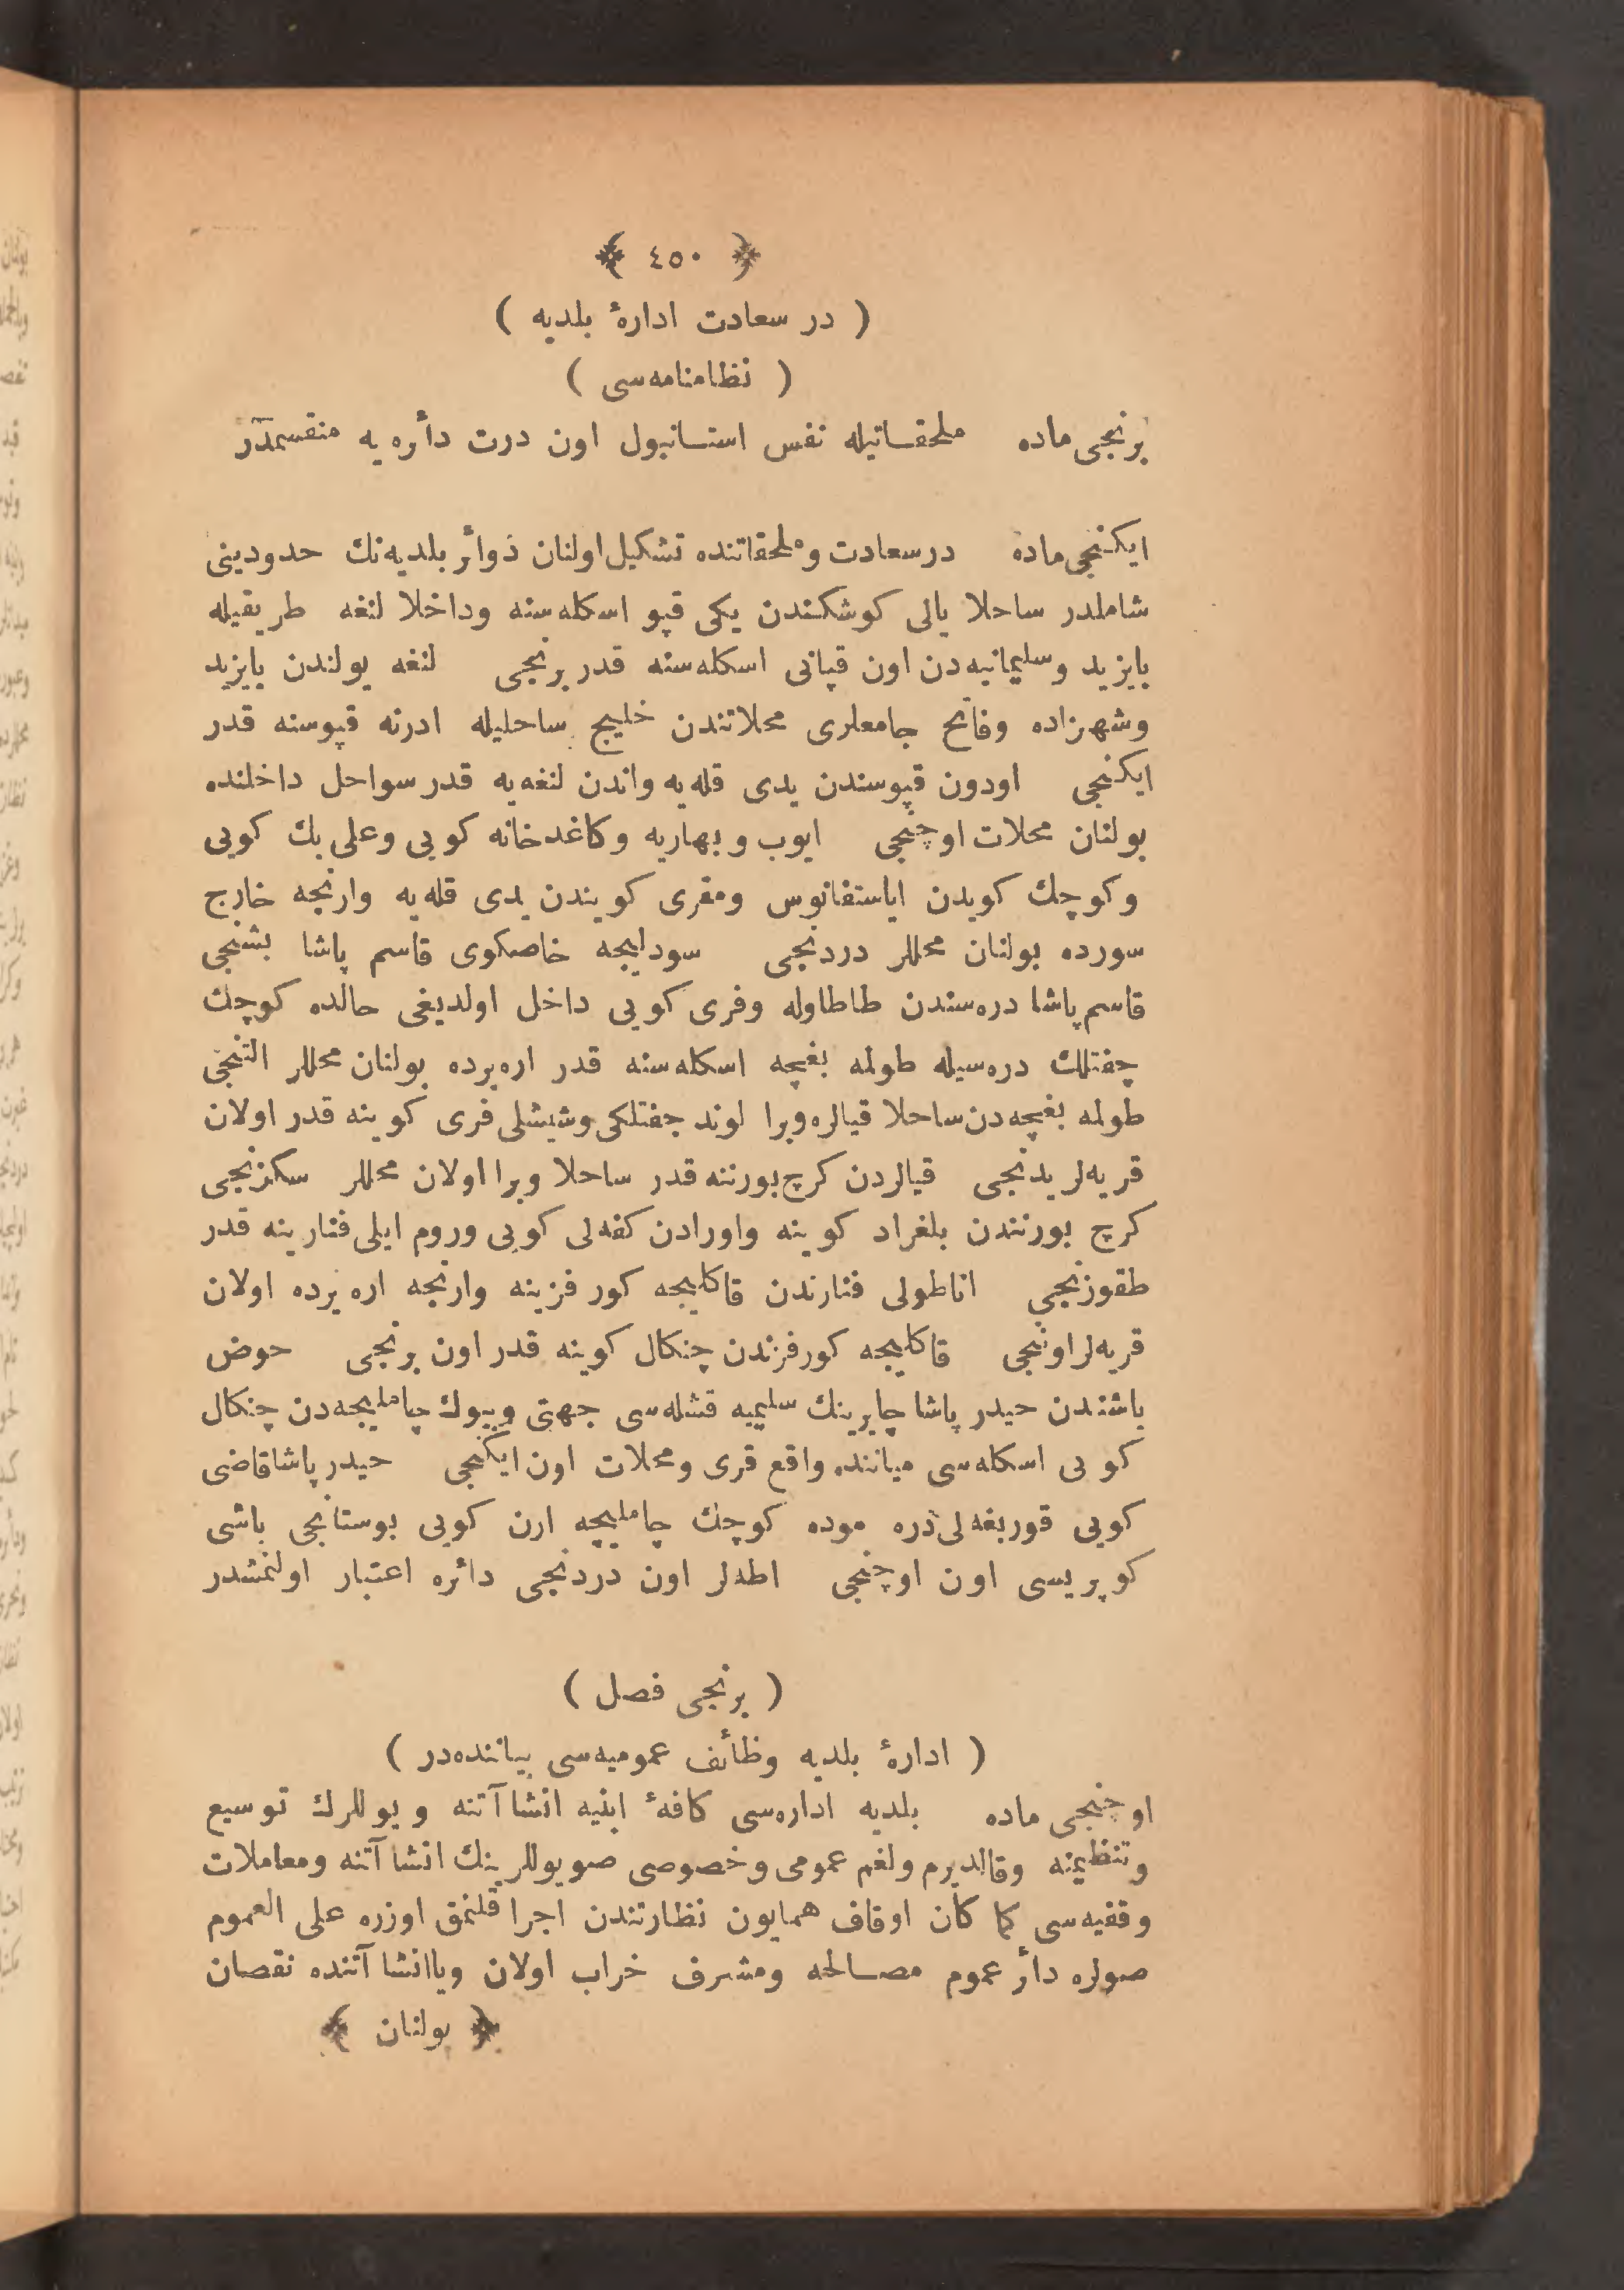 ﴿ ٤٥٠ ﴾
( در سعادت ادارهٔ بلدیه )
( نظامنامه‌سی )
برنجی ماده ملحقاتیله نفس استانبول اون درت دائره یه منقسمدر
ایکنجی ماده درسعادت وملحقاتنده تشکیل اولنان دوائر بلدیه‌نك حدودینی
شاملدر ساحلا یالی کوشکندن یکی قپو اسکله‌سنه وداخلا لنغه طریقیله
بایزید وسلیمانیه‌دن اون قپانی اسکله‌سنه قدر برنجی لنغه یولندن بایزید
وشهزاده وفاتح جامعلری محلاتندن خلیج ساحلیله ادرنه قپوسنه قدر
ایکنجی اودون قپوسندن یدی قله‌یه واندن لنغه‌یه قدر سواحل داخلنده
بولنان محلات اوچنجی ایوب وبهاریه وکاغدخانه کویی وعلی بك کویی
وکوچك کویدن ایاستفانوس ومقری کویندن یدی قله‌یه وارنجه خارج
سورده بولنان محللر دردنجی سودلیجه خاصکوی قاسم پاشا بشنجی
قاسم پاشا دره‌سندن طاطاوله وفری کویی داخل اولدیغی حالده کوچك
چفتلك دره‌سیله طولمه بغچه اسکله‌سنه قدر اره‌یرده بولنان محللر التنجی
طولمه بغچه‌دن ساحلا قیالره وبرا لوند جفتلکی وشیشلی فری کوینه قدر اولان
قریه‌لر یدنجی قیالردن کرچ بورننه قدر ساحلا وبرا اولان محللر سکزنجی
کرچ بورنندن بلغراد کوینه واورادن کفه‌لی کویی وروم ایلی فنارینه قدر
طقوزنجی اناطولی فنارندن قاکلیجه کورفزینه وارنجه اره یرده اولان
قریه‌لر اونجی قاکلیجه کورفزندن چنکال کوینه قدر اون برنجی حوض
باشندن حیدر پاشا چایرینك سلیمیه قشله‌سی جهتی وبیوك چاملیجه‌دن چنکال
کویی اسکله‌سی میاننده واقع قری ومحلات اون ایکنجی حیدر پاشا قاضی
کویی قوربغه‌لی دره موده کوچك چاملیچه ارن کویی بوستانجی باشی
کوپریسی اون اوچنجی اطه‌لر اون دردنجی دائره اعتبار اولنمشدر
( برنجی فصل )
( ادارهٔ بلدیه وظائف عمومیه‌سی بیاننده‌در )
اوچنجی ماده بلدیه اداره‌سی کافهٔ ابنیه انشاآتنه ویوللرك توسیع
وتنظیمنه وقالدیرم ولغم عمومی وخصوصی صویوللرینك انشاآتنه ومعاملات
وقفیه‌سی کما کان اوقاف همایون نظارتندن اجرا قلنمق اوزره علی العموم
صولره دائر عموم مصالحه ومشرف خراب اولان ویا انشاآتنده نقصان
﴿ بولنان ﴾